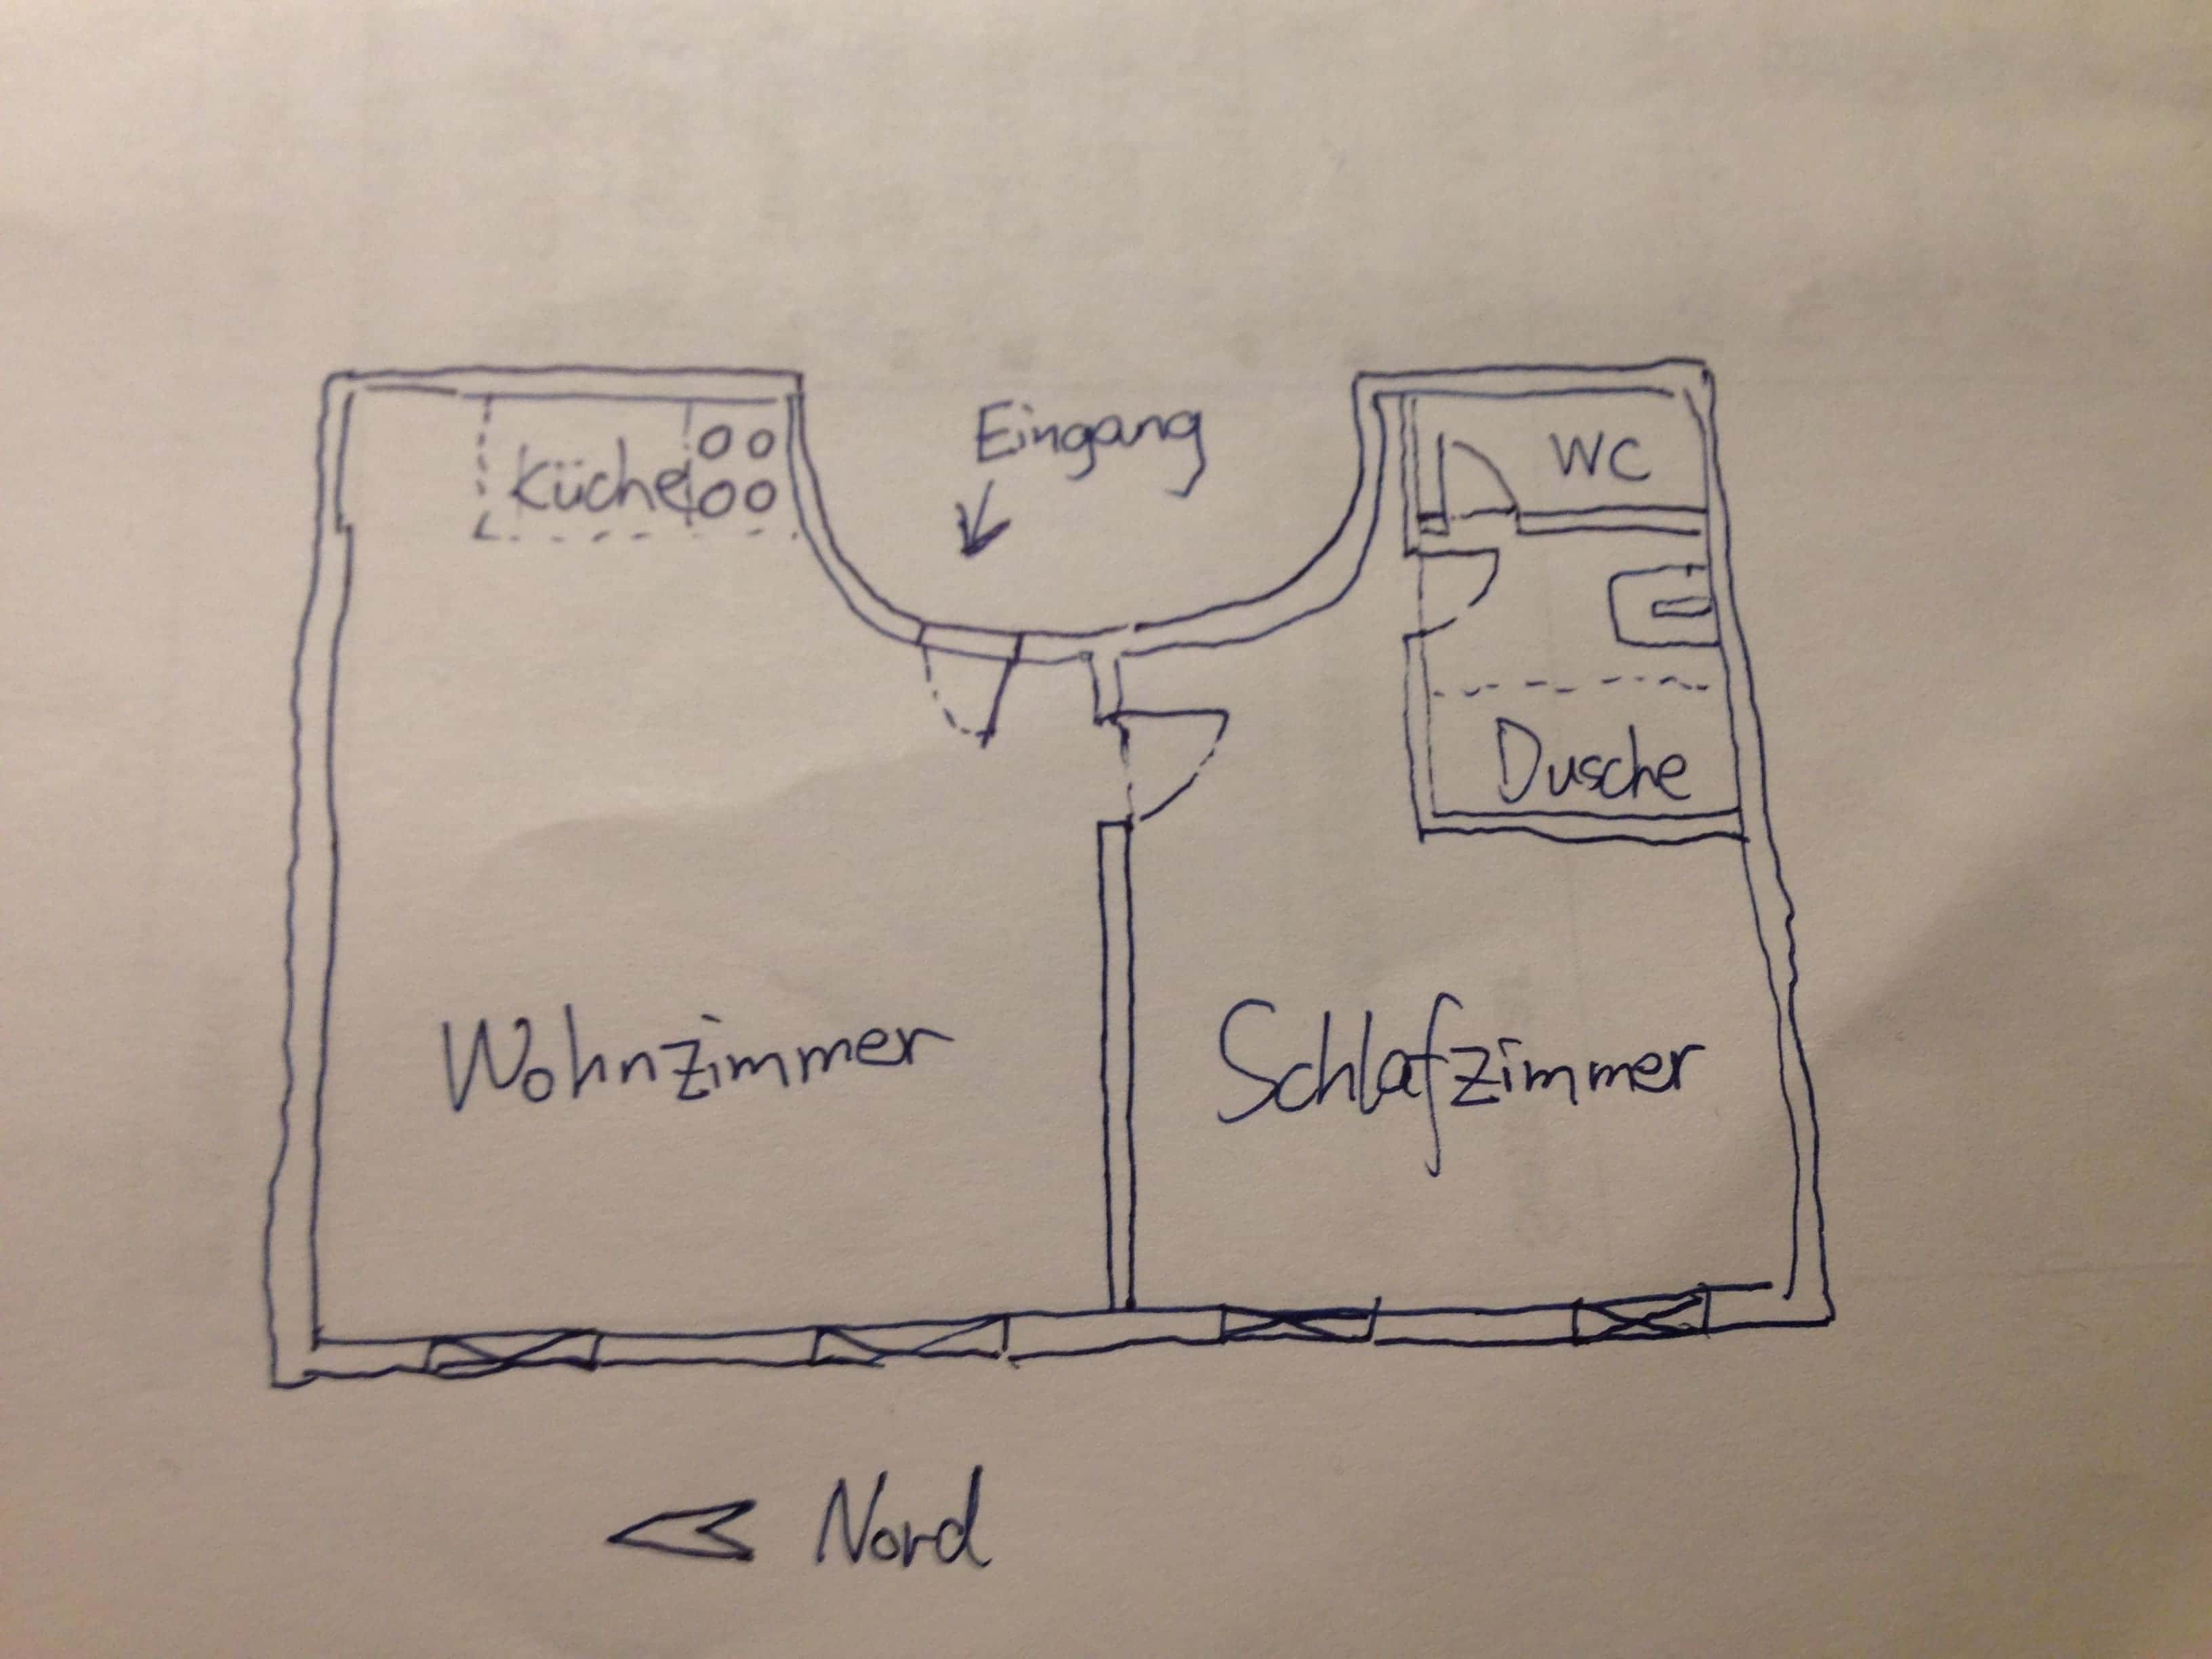 Eingang
WC
Küche
Dusche
Wohnzimmer
Schlafzimmer
Nord